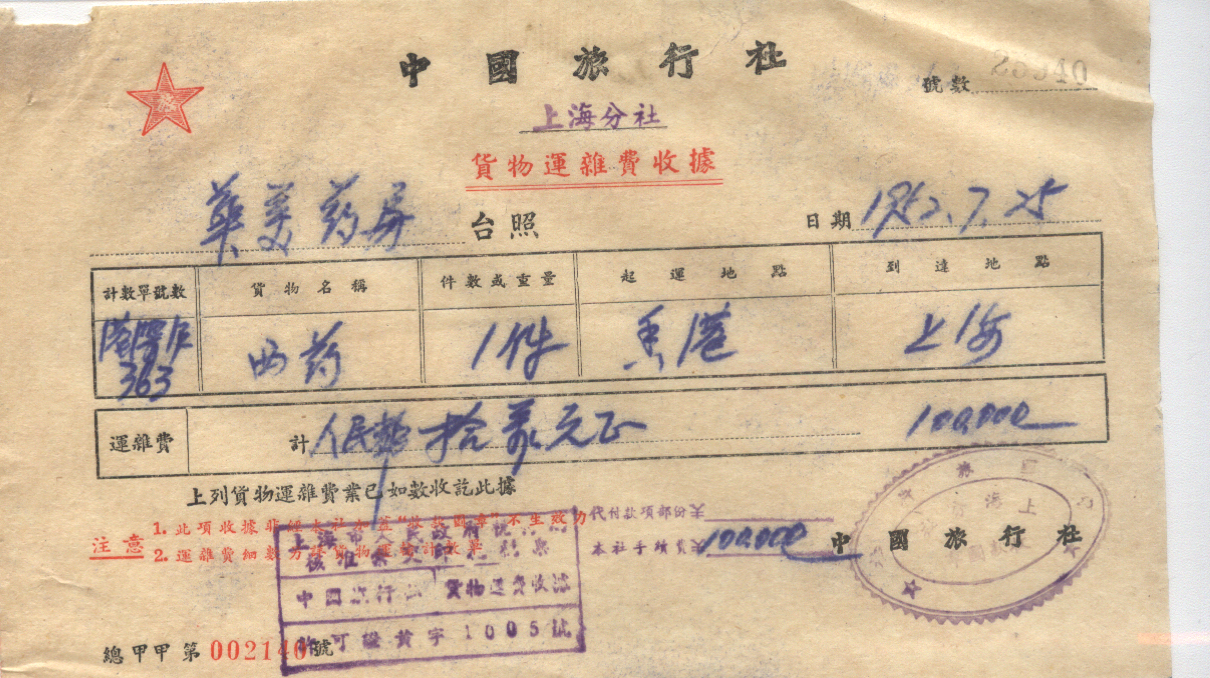 中國旅行社
號數
上海分社
貨物運雜費收據
華美药房 台照 日期 1952.7.25
計數單號數 貨物名稱 件數或重量 起運地點 到達地點
363 西药 1件 香港 上海
運雜費 計 人民幣拾萬元正 100,000
上列貨物運雜費業已如數收訖此據
注意 1. 此項收據非經本社加蓋 不生效力
2. 運雜費細數另詳貨物運雜計數單
代付款項部份¥
本社手續費¥ 100,000
中國旅行社
上海市人民政府税
中國旅行社 貨物運費收據
許可證黄字1005號
總甲甲第002140號